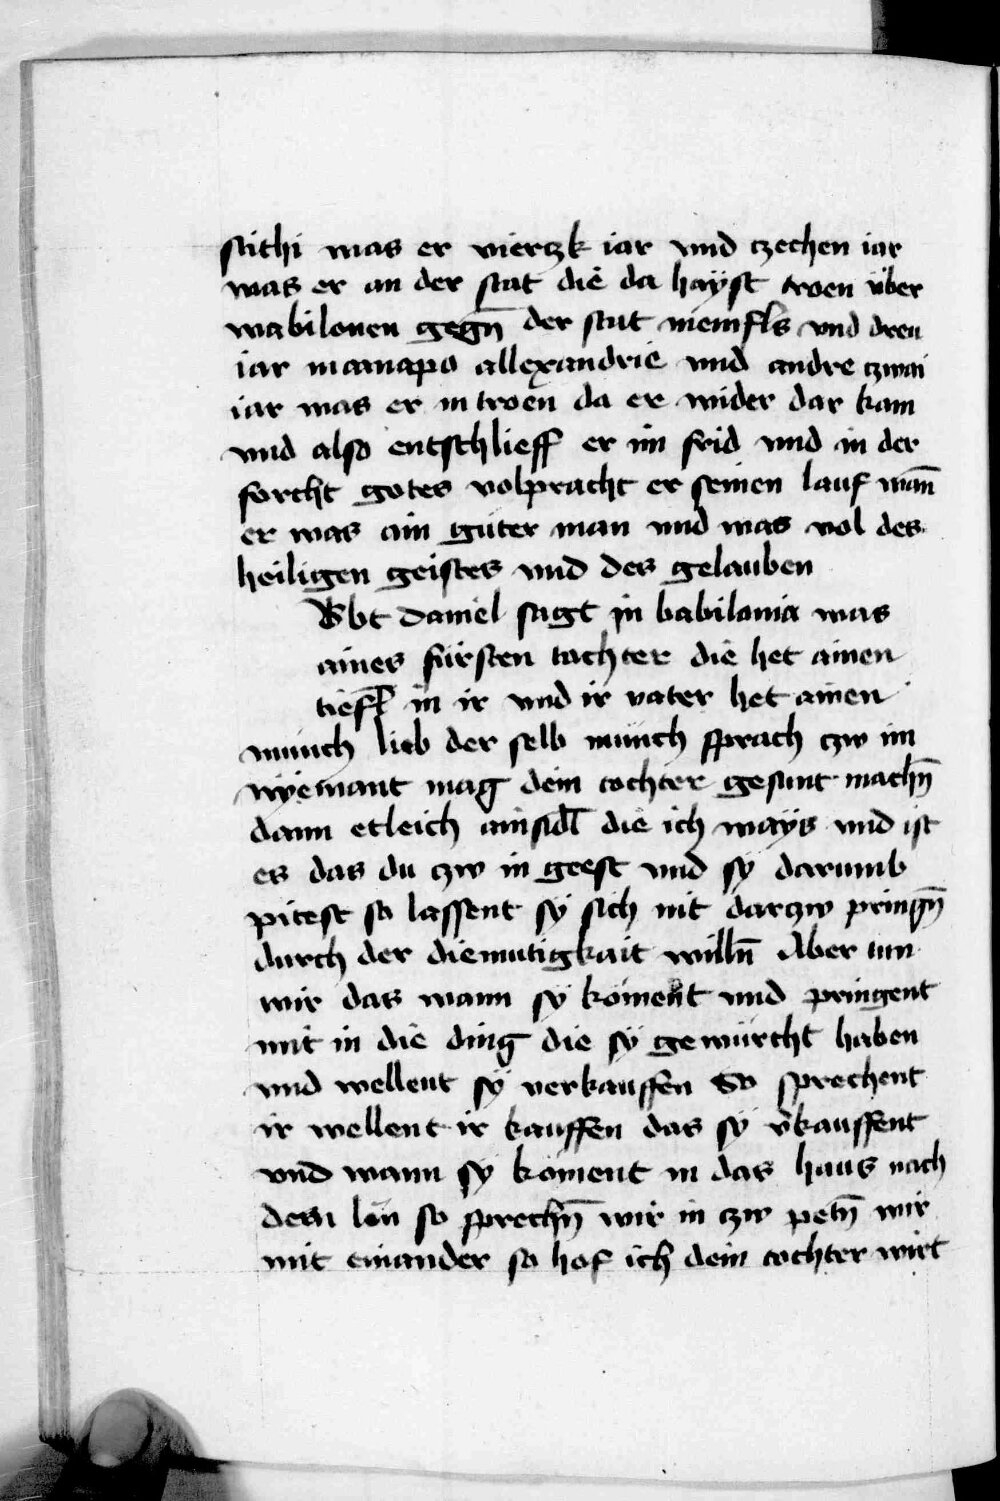 stithi was er vierczk iar vnd czechen iar
was er an der stat die da hayst troen über
wabilonen gegn̄ der stat memfis vnd dreu
iar in canapo allexandrie vnd andre czwai
iar was er in troen da er wider dar kam
vnd also entschlieff er im frid vnd in der
forcht gotes volpracht er seinen lauf wan̄
er was ain guter man vnd was vol des
heiligen geistes vnd des gelauben
Abt daniel sagt in babilonia was
aines fürsten tochter die het ainen
tiefl in ir vnd ir vater het ainen
münch lieb der selb münch sprach czw im
nyemant mag dein tochter gesunt machn̄
dann etleich ainsidl̄ die ich ways vnd ist
es das du czw in geest vnd sy darumb
pitest so lassent sy sich nit darczw pringn̄
durch der diemutigkait willn̄ Aber tun
wir das wann sy koment vnd pringent
mit in die ding die sy gewürcht haben
vnd wellent sy verkauffen So sprechent
ir wellent ir kauffen das sy v̄kauffent
vnd wann sy koment in das haus nach
dem lon so sprechn̄ wir in czw petn̄ wir
mit einander so hof ich dein tochter wirt